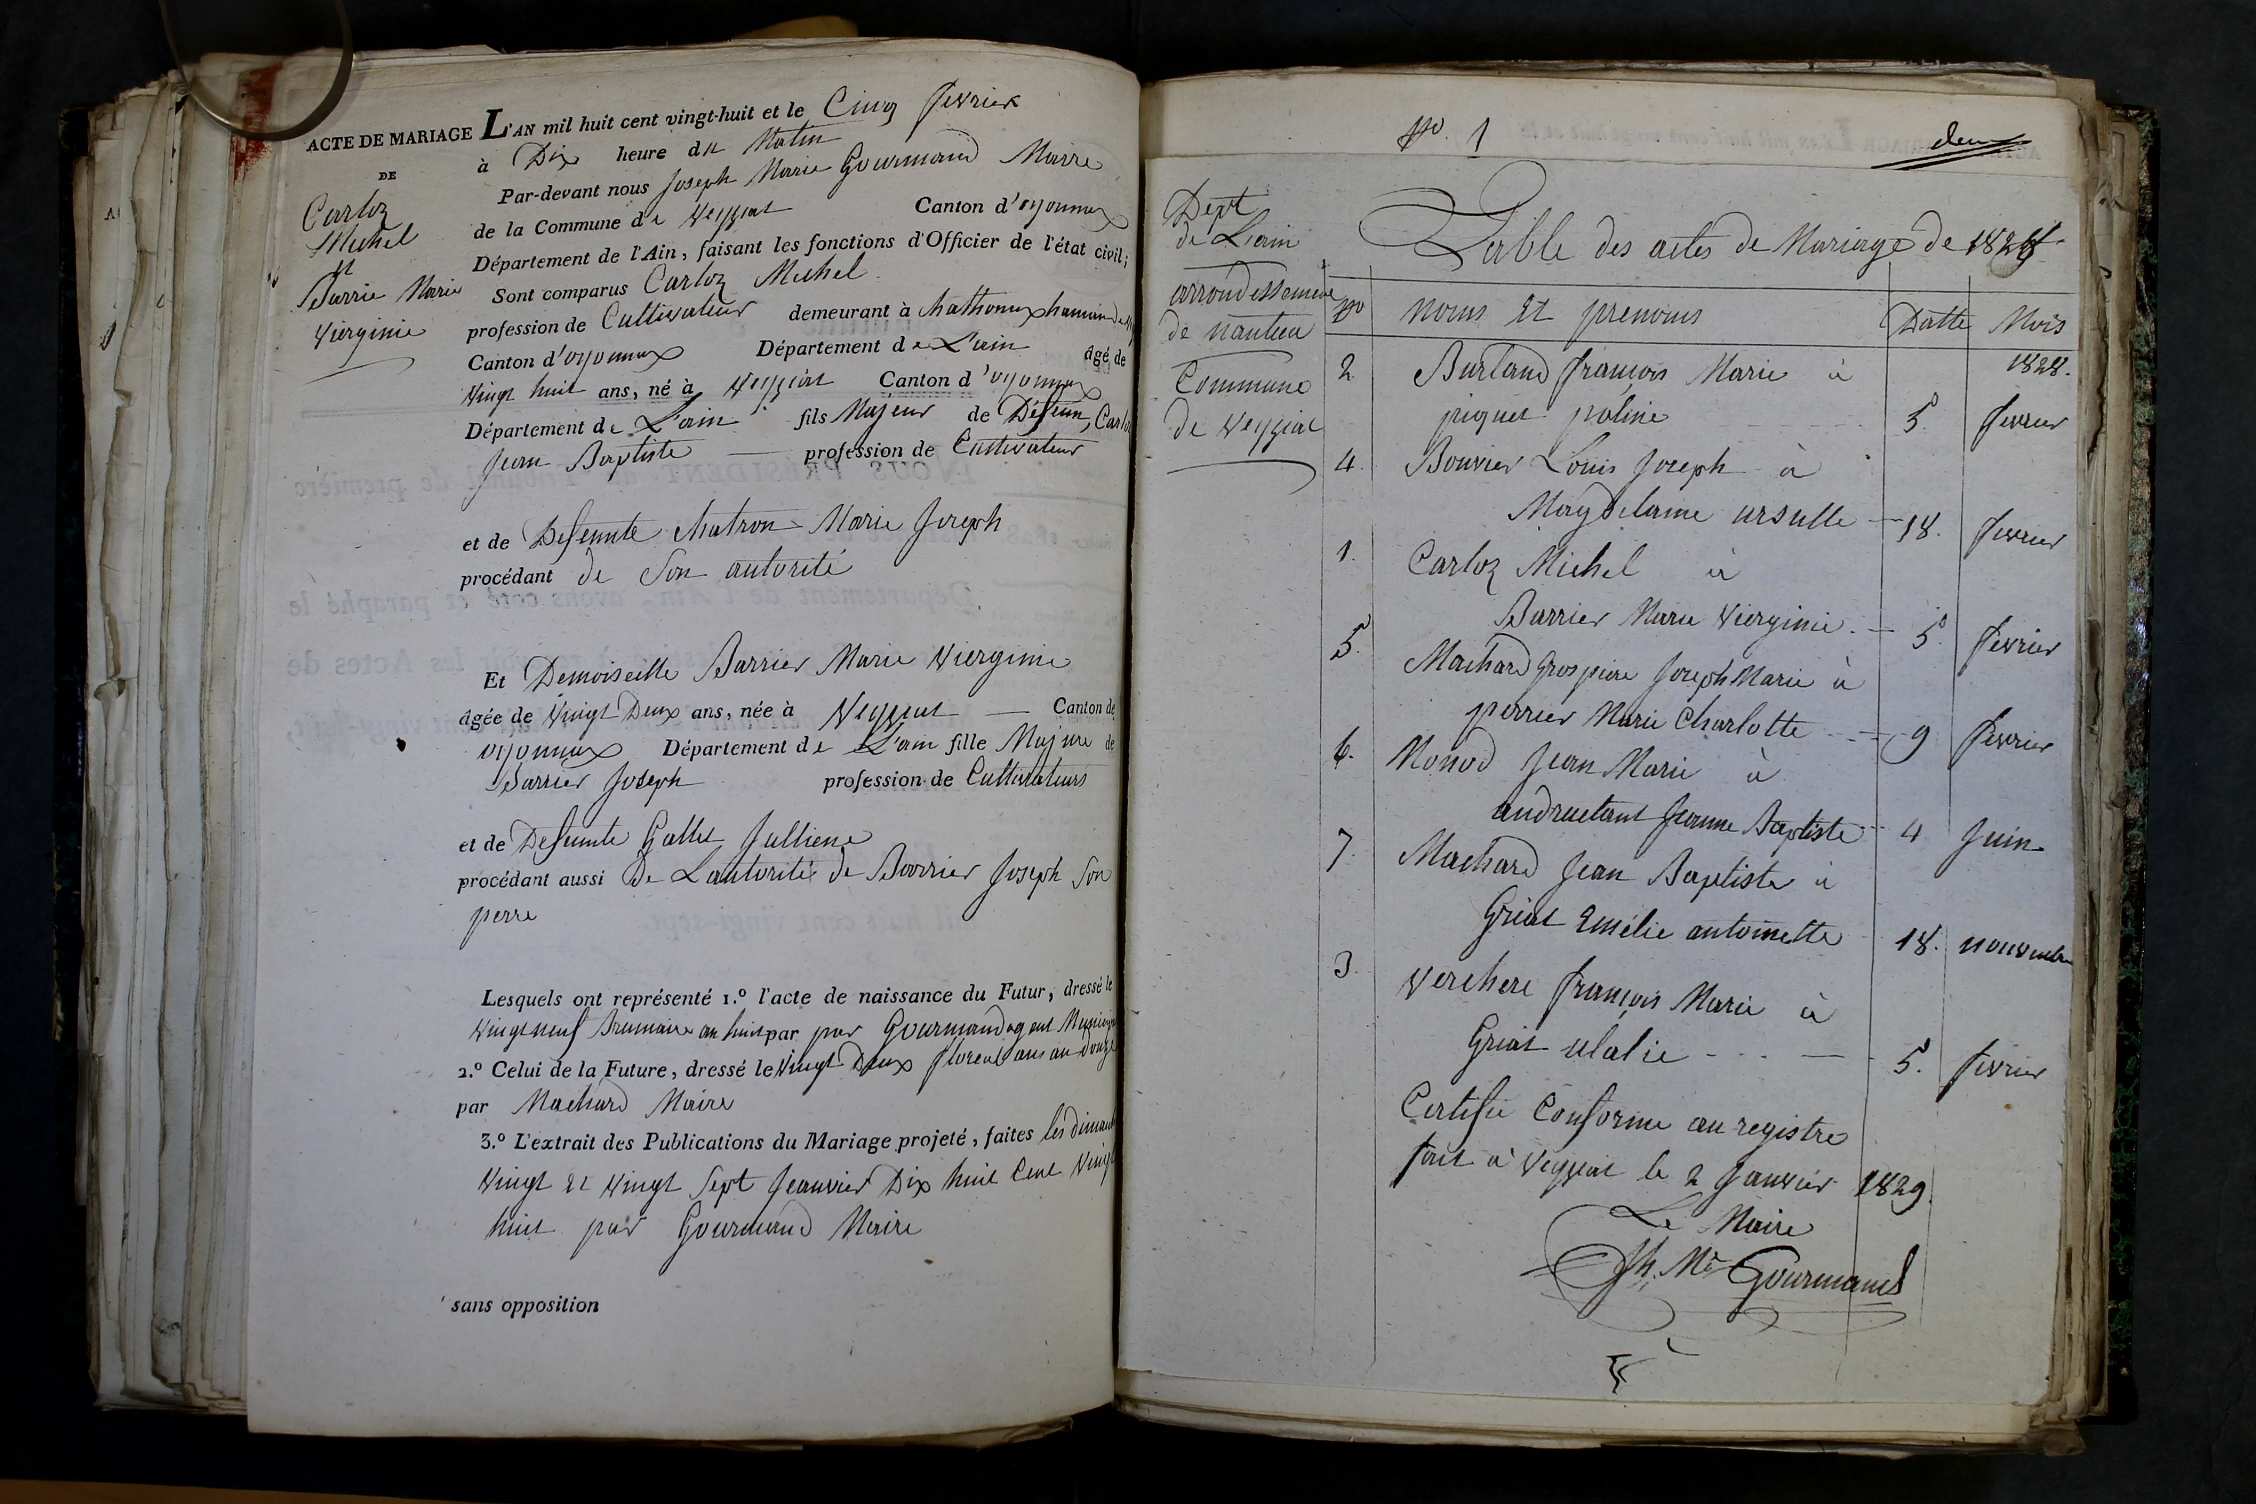 ACTE DE MARIAGE L'AN mil huit cent vingt-huit et le Cinq fevrier
DE
à Dix heure du Matin
Par-devant nous Joseph Marie Gourmand Maire
Carloz
Michel
et
Barrie Marie
Vierginie
de la Commune de Veyziat Canton d'oyonnax
Département de l'Ain, faisant les fonctions d'Officier de l'état civil;
Sont comparus Carloz Michel
profession de Cultivateur demeurant à Chatonnax hamau de
Canton d'oyonnax Département de L'ain âgé de
Vingt huit ans, né à Veyziat Canton d'oyonnax
Département de L'ain fils Majeur de Défeun, Carloz
Jean Baptiste profession de Cultivateur
et de Defeunte Chatron Marie Joseph
procédant de Son autorité
Et Demoiselle Barrier Marie Vierginie
âgée de Vingt Deux ans, née à Veyziat Canton de
oyonnax Département de L'ain fille Majure de
Barrier Joseph profession de Cultivateurs
et de Defeunte Gallet Julliene
procédant aussi De Lautorité de Barrier Joseph Son
perre
Lesquels ont représenté 1.º l'acte de naissance du Futur, dressé le
Vingt neuf Brumaire an huit par par Gourmand agent Municipa
2.º Celui de la Future, dressé le Vingt Deux floreal ans an douze
par Machard Maire
3.º L'extrait des Publications du Mariage projeté, faites les dimanch
Vingt et Vingt Sept Jeanvier Dix huit Cent Vingt
huit par Gourmand Maire
sans opposition
No. 1
deux
Dept
de L'ain
arrondissement
de nantua
Commune
de Veyziat
Table des actes de Mariage de 1828
No noms et prenoms Datte Mois
1828.
2 Burland francois Marie à
piquet poline 5 fevrier
4. Bouvier Louis Joseph à
Magdelaine ursulle 18. fevrier
1. Carloz Michel à
Barrier Marie Vierginie 5 fevrier
5. Machard Grospiere Joseph Marie à
perrier Marie Charlotte 9 fevrier
6. Monod Jean Marie à
andruetant Jeanne Baptiste 4 Juin
7. Machard Jean Baptiste à
Griat Emélie antoinette 18. nouvembre
3. Verchere françois Marie à
Griat ulalie 5. fevrier
Certifie Conforme au registre
fait a Veyziat le 2 Janvier 1829.
Le Maire
Jh. Mie Gourmand